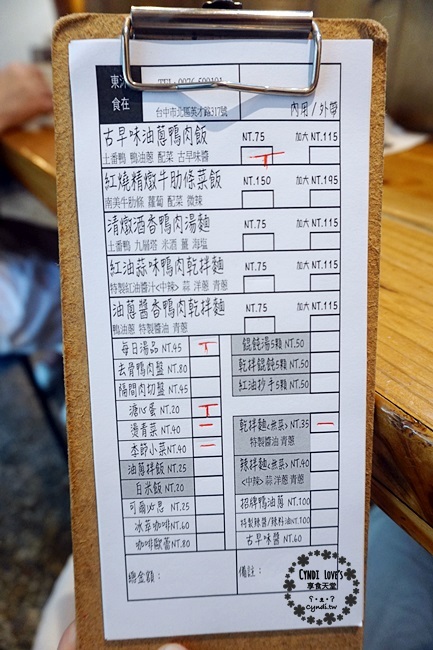 東
食在
台中市北區英才路317號
內用/外帶
古早味油蔥鴨肉飯 NT.75 加大 NT.115
土番鴨 鴨油蔥 配菜 古早味醬
紅燒精燉牛肋條菜飯 NT.150 加大 NT.195
南美牛肋條 蘿蔔 配菜 微辣
清燉酒香鴨肉湯麵 NT.75 加大 NT.115
土番鴨 九層塔 米酒 薑 海塩
紅油蒜味鴨肉乾拌麵 NT.75 加大 NT.115
特製紅油醬汁<中辣> 蒜 洋蔥 青蔥
油蔥醬香鴨肉乾拌麵 NT.75 加大 NT.115
鴨油蔥 特製醬油 青蔥
每日湯品 NT.45
去骨鴨肉盤 NT.80
隔間肉切盤 NT.45
溏心蛋 NT.20
燙青菜 NT.40
季節小菜 NT.40
油蔥拌飯 NT.25
白米飯 NT.20
可爾必思 NT.25
冰萃咖啡 NT.60
咖啡歐蕾 NT.80
餛飩湯5顆 NT.50
乾拌餛飩5顆 NT.50
紅油抄手5顆 NT.50
乾拌麵<無菜> NT.35
特製醬油 青蔥
辣拌麵<無菜> NT.40
<中辣> 蒜 洋蔥 青蔥
招牌鴨油蔥 NT.100
特製辣醬/辣料油 NT.100
古早味醬 NT.60
總金額:
備註:
CYNDI LOVE's
享食天堂
Cyndi.tw